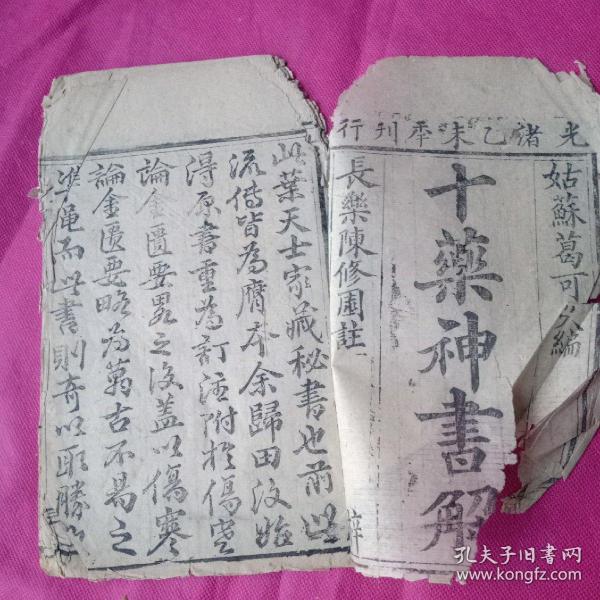 光緒乙未季刊行
姑蘇葛可久編
十藥神書解
長樂陳修園註
此葉天士家藏秘書也前此
流傳皆為膺本余歸田後始
淂原書重為訂注附於傷寒
論金匱要畧之後蓋以傷寒
論金匱要略為萬古不易之
準繩而此書則奇以取勝
孔夫子旧书网
www.kongfz.com